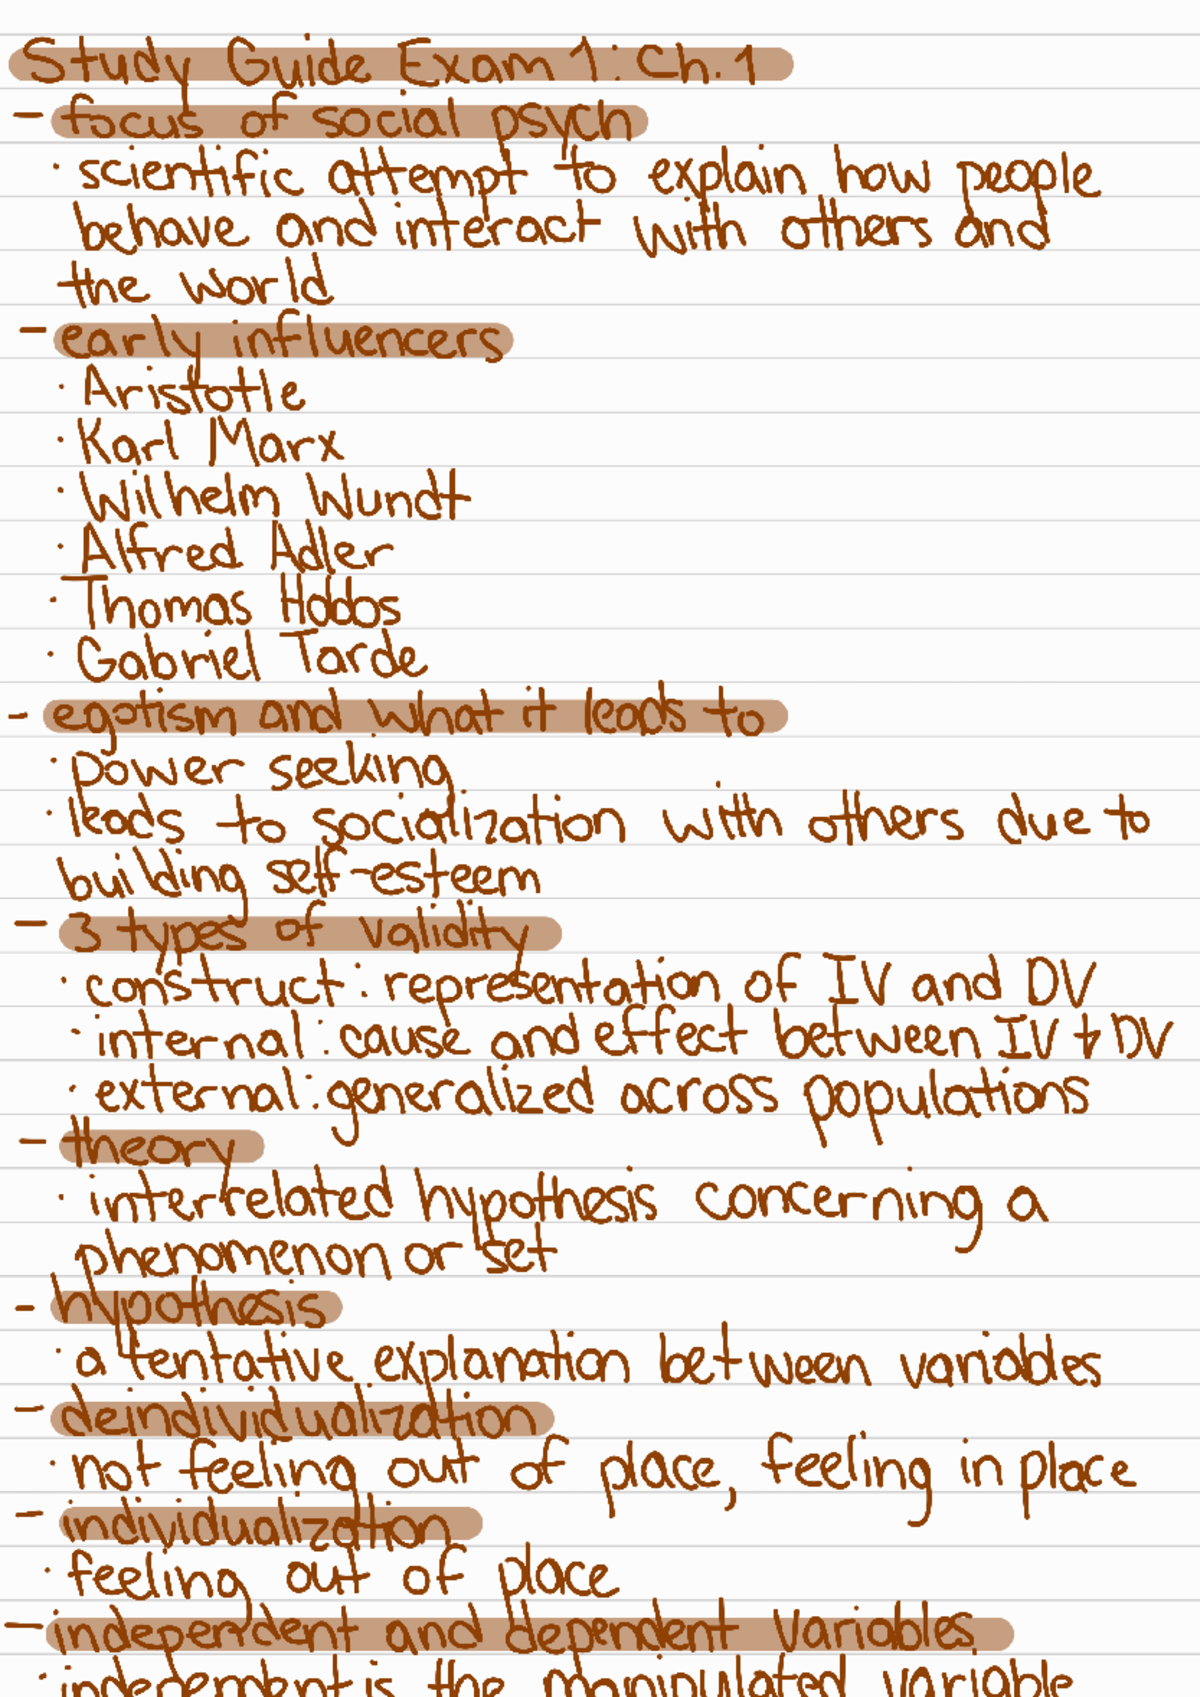 Study Guide Exam 1: Ch. 1
- focus of social psych
· scientific attempt to explain how people
behave and interact with others and
the world
- early influencers
· Aristotle
· Karl Marx
· Wilhelm Wundt
· Alfred Adler
· Thomas Hobbs
· Gabriel Tarde
- egotism and what it leads to
· power seeking
· leads to socialization with others due to
building self-esteem
- 3 types of validity
· construct: representation of IV and DV
· internal: cause and effect between IV + DV
· external: generalized across populations
- theory
· interrelated hypothesis concerning a
phenomenon or set
- hypothesis
· a tentative explanation between variables
- deindividualization
· not feeling out of place, feeling in place
- individualization
· feeling out of place
- independent and dependent variables
· independent is the manipulated variable